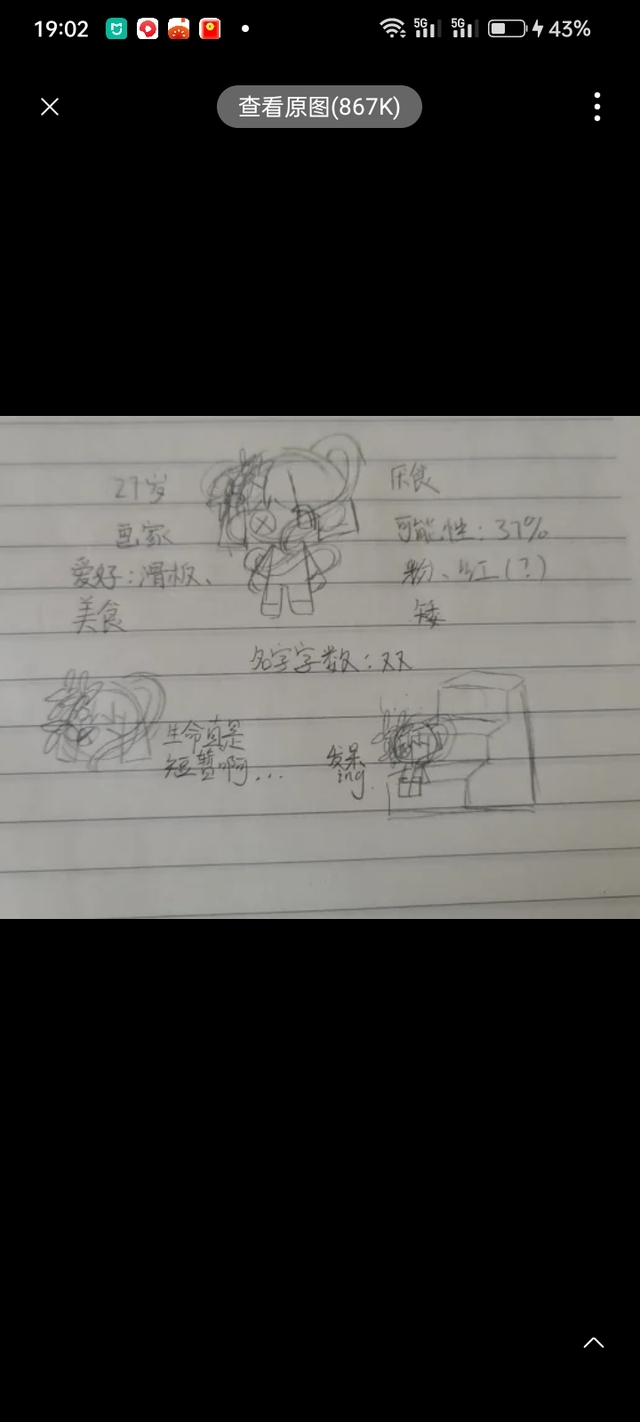 19:02
5G
5G
43%
查看原图(867K)
27岁
厌食
画家
可能性：37%
爱好：滑板、
粉、红(?)
美食
矮
名字字数：双
生命真是
短暂啊...
发呆
ing